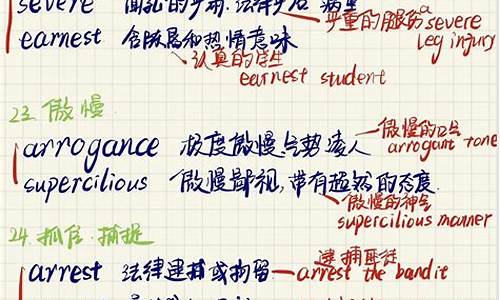 severe
严重的腿伤 a severe
leg injury
earnest 含严肃和热情意味
认真的学生
earnest student
23. 傲慢
arrogance 极度傲慢,气势凌人
傲慢的口气
arrogant tone
supercilious 傲慢鄙视,带有超然的态度.
傲慢的神气
supercilious manner
24. 抓住.捕捉
arrest 法律逮捕或拘留
逮捕匪徒
arrest the bandit